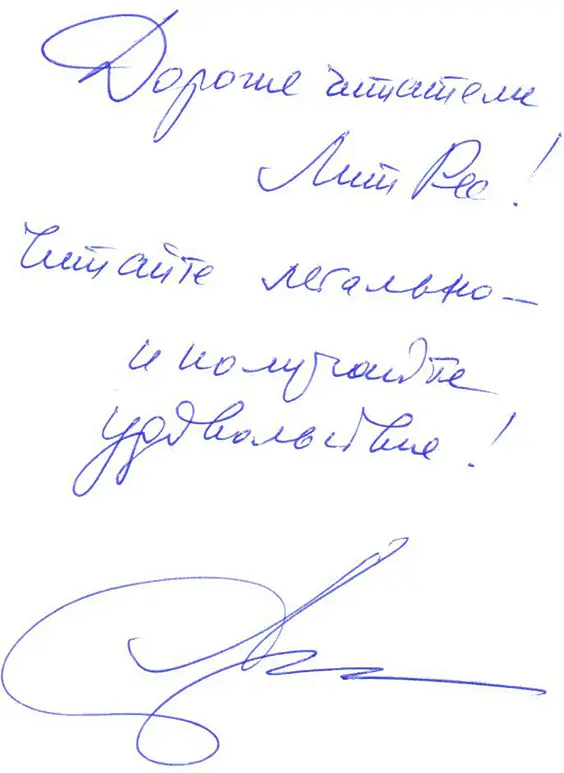 Дорогие читатели
ЛитРес!
Читайте легально —
и получайте
удовольствие!